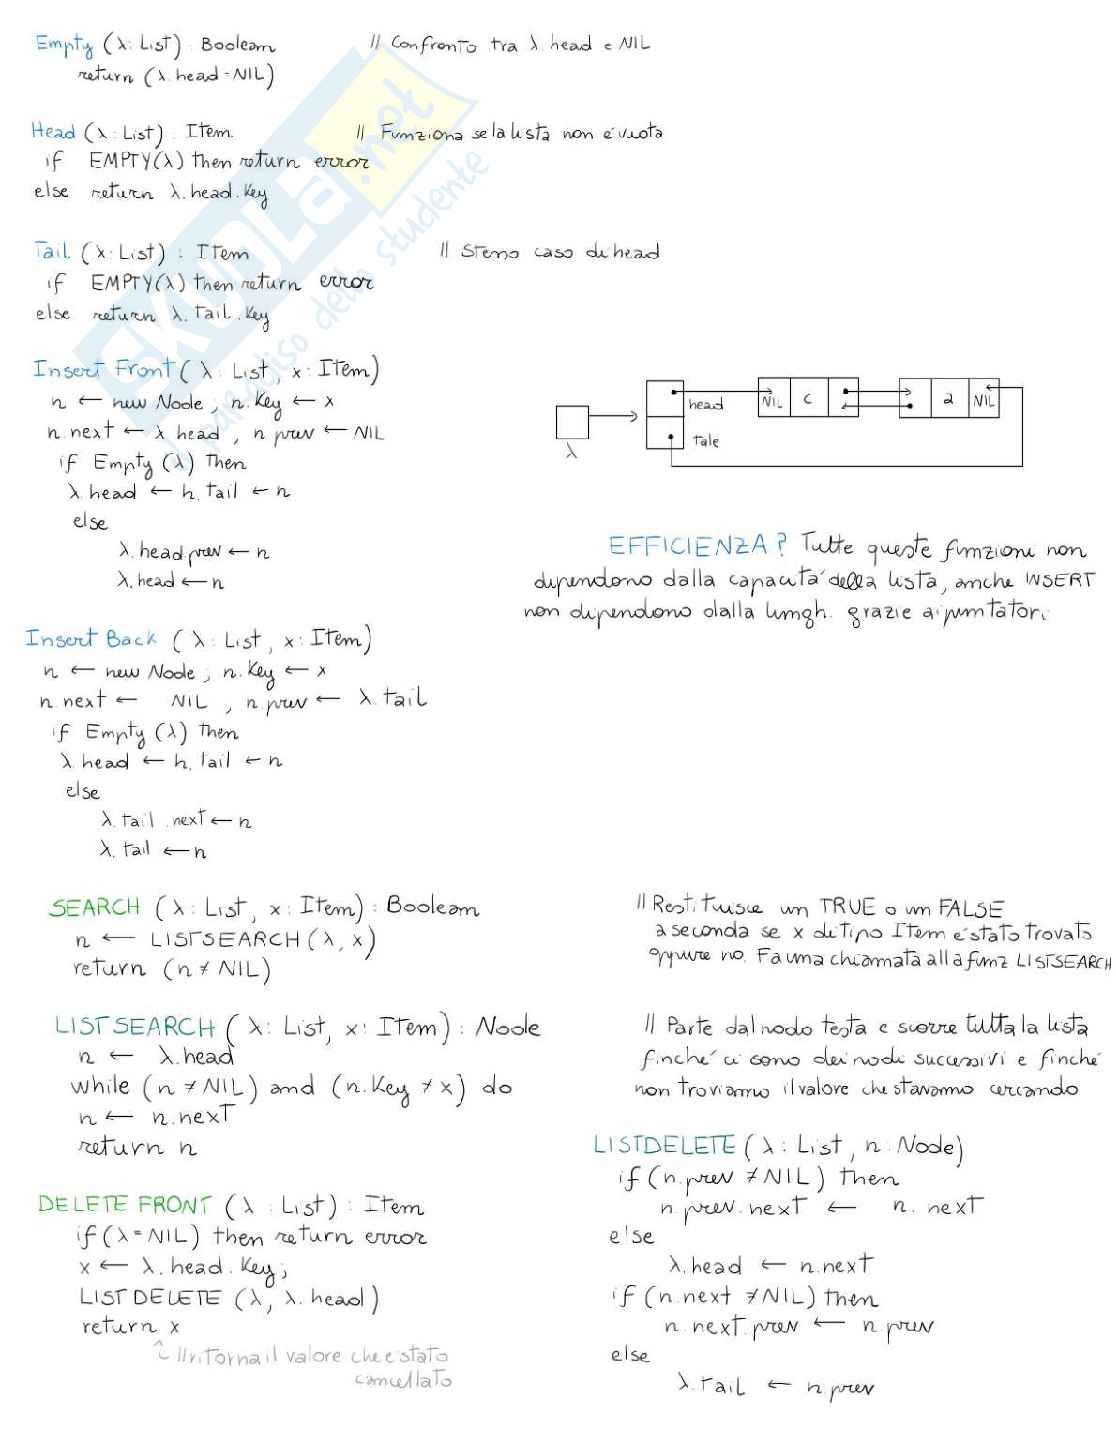 Empty (λ: List) : Boolean // Confronto tra λ.head e NIL
return (λ.head = NIL)
Head (λ: List) : Item // Funziona se la lista non è vuota
if EMPTY(λ) then return error
else return λ.head.Key
Tail (λ: List) : Item // Stesso caso di head
if EMPTY(λ) then return error
else return λ.tail.Key
Insert Front (λ: List, x: Item)
n ← new Node, n.Key ← x
n.next ← λ.head, n.prev ← NIL
if Empty (λ) Then
λ.head ← h.tail ← n
else
λ.head.prev ← n
λ.head ← n
λ
head
tale
NIL C
a NIL
EFFICIENZA? Tutte queste funzioni non
dipendono dalla capacità della lista, anche INSERT
non dipendono dalla lungh. grazie ai puntatori.
Insert Back (λ: List, x: Item)
n ← new Node; n.Key ← x
n.next ← NIL, n.prev ← λ.tail
if Empty (λ) Then
λ.head ← h.tail ← n
else
λ.tail.next ← n
λ.tail ← n
SEARCH (λ: List, x: Item) : Boolean
n ← LISTSEARCH (λ, x)
return (n ≠ NIL)
// Restituisce un TRUE o un FALSE
a seconda se x di tipo Item è stato trovato
oppure no. Fa una chiamata alla funz LISTSEARCH
LISTSEARCH (λ: List, x: Item) : Node
n ← λ.head
while (n ≠ NIL) and (n.Key ≠ x) do
n ← n.next
return n
// Parte dal nodo testa e scorre tutta la lista
finché ci sono dei nodi successivi e finché
non troviamo il valore che stavamo cercando
DELETE FRONT (λ: List) : Item
if (λ = NIL) then return error
x ← λ.head.Key;
LISTDELETE (λ, λ.head)
return x
// ritorna il valore che è stato
cancellato
LISTDELETE (λ: List, n: Node)
if (n.prev ≠ NIL) then
n.prev.next ← n.next
else
λ.head ← n.next
if (n.next ≠ NIL) then
n.next.prev ← n.prev
else
λ.tail ← n.prev
SKUOLA.net
il paradiso dello studente